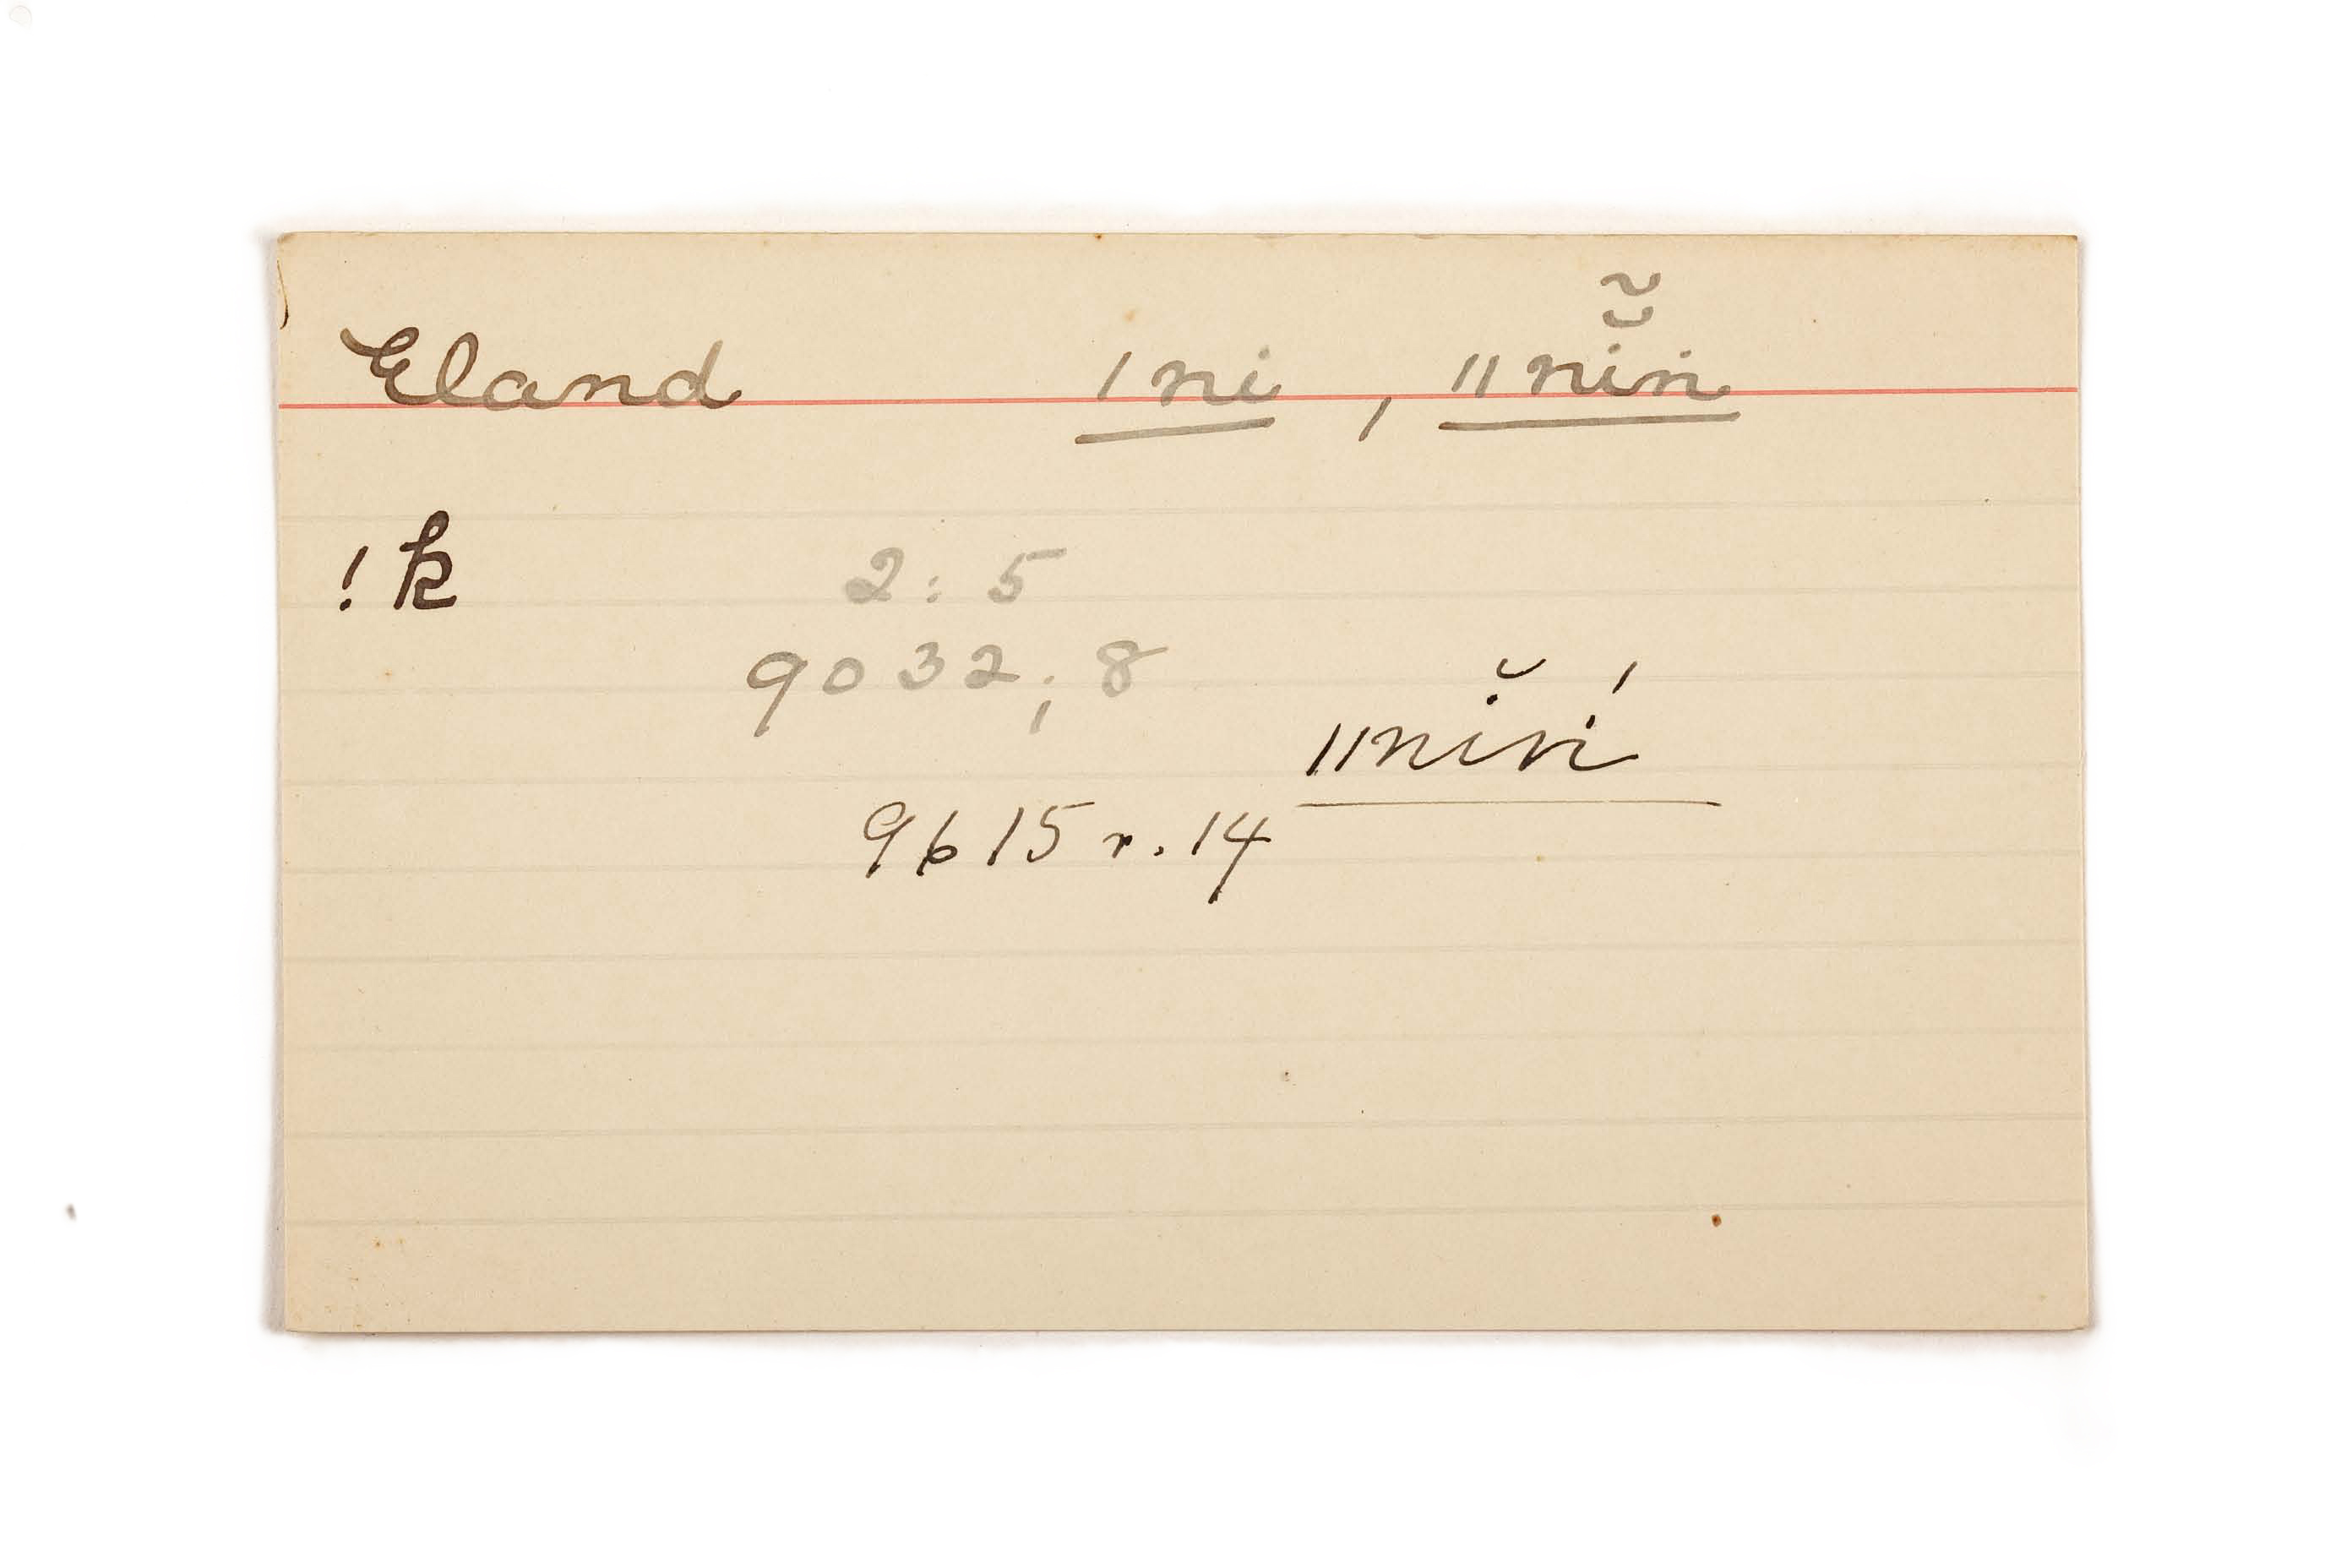 Eland |ni , ||nĭ̃ń
!k 2 : 5
9032 ; 8
||nĭń
9615 r. 14